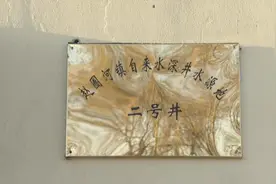 赵圈河镇自来水深井水源地
二号井